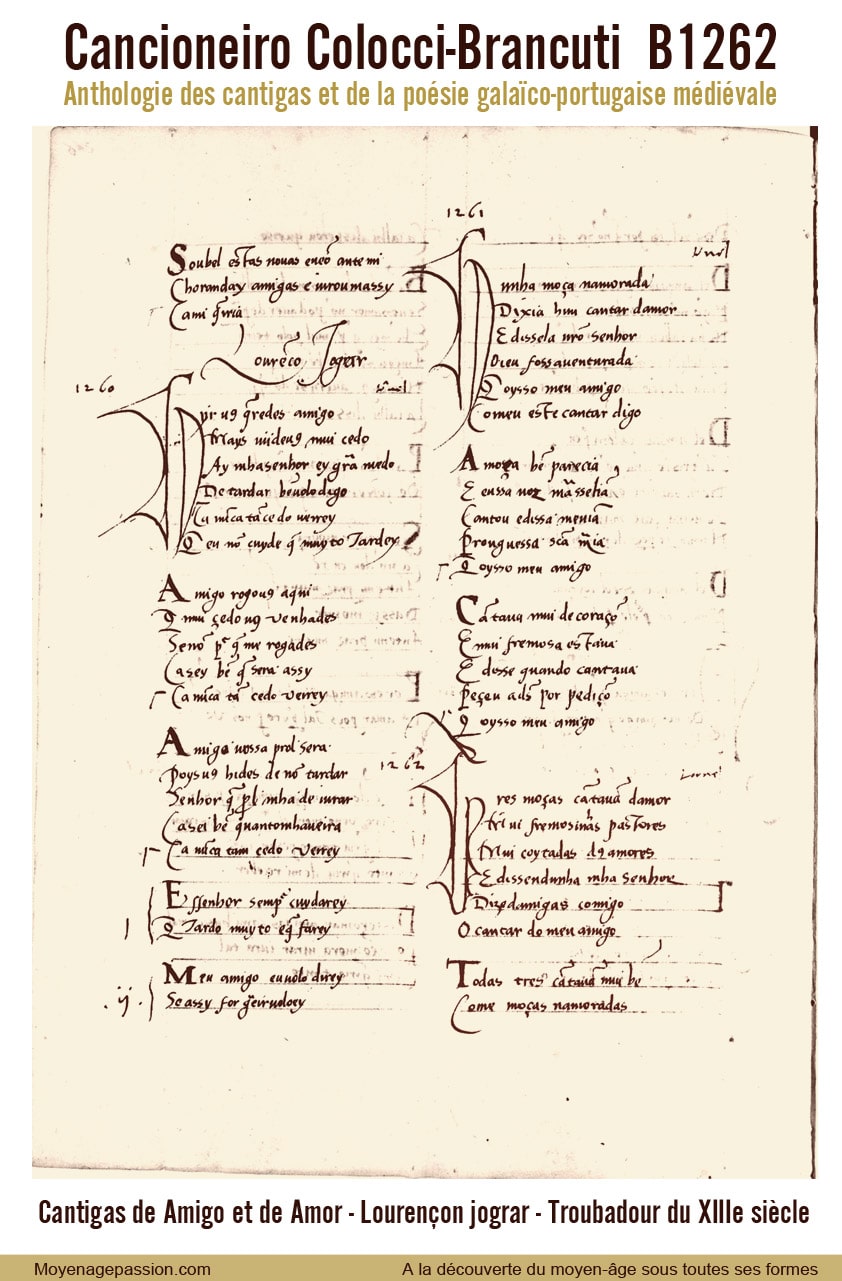 Cancioneiro Colocci-Brancuti B1262
Anthologie des cantigas et de la poésie galaïco-portugaise médiévale
Soubel estas nouas eneō ante mi
Choranday amigas e iurou massy
Ca mi q̄ria
Lourēco Jograr
1260
Ir uꝯ q̄redes amigo
Mays uijdeuꝯ mui cedo
Ay mha senhor ey grā medo
De tardar beuolo digo
Ca nūca tā cedo verrey
Q eu nō cuyde q̄ muyto Tardey
Amigo rogouꝯ aqui
Q mui çedo uꝯ venhades
Senor pʳ q̄ me rogades
Ca sey bē q̄ sera assy
Ca nūca tā cedo verrey
Amigo uossa prol sera
Poys uꝯ hides de nō tardar
Senhor q̄ prol mha de iurar
Ca sei bē q̄ quantomhaueira
Ca nūca tam çedo verrey
E ssenhor sempʳ cuydarey
Q Tardo muyto e q̄ farey
Meu amigo euuolo direy
Se assy for
1261
Hunha moça namorada
Dixia hun cantar damor
E dissela nrō senhor
Oieu foss auenturada
Q oysso meu amigo
Comeu este cantar digo
A moça bē parecia
E eussa uoz
Cantou e dissa meniā
Prouguessa scā mīa
Q oysso meu amigo
Cātaua mui de coraçō
E mui fremosa estaua
E disse quando cantaua
Peçeu a ds̄ por pediçō
Q oysso meu amigo
1262
Tres moças cātauā damor
Mui fremosinhas pastores
Mui coytadas dꝯ amores
E dissendunha mha senhor
Dized amigas comigo
O cantar do meu amigo
Todas tres cātauā mui bē
Come moças namoradas
Cantigas de Amigo et de Amor - Lourençon jograr - Troubadour du XIIIe siècle
Moyenagepassion.com
A la découverte du moyen-âge sous toutes ses formes